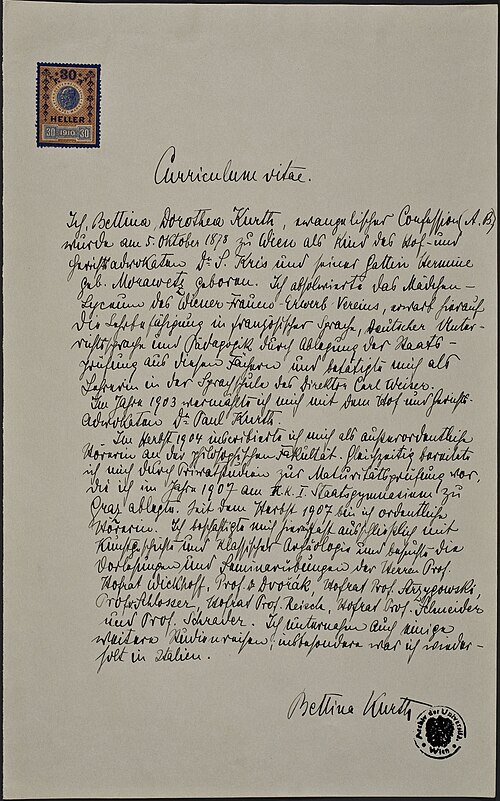 30
HELLER
30 1910 30
Curriculum vitae.
Ich, Bettina Dorothea Kurth, evangelischer Confession (A. B.)
wurde am 5. Oktober 1878 zu Wien als Kind des Hof- und
Gerichtsadwokaten Dr. S. Kris und seiner Gattin Hermine
geb. Morawetz geboren. Ich absolvierte das Mädchen-
Lyceum des Wiener Frauen-Erwerb Vereins, erwarb hierauf
die Lehrbefähigung in französischer Sprache, deutscher Unter-
richtssprache und Pädagogik durch Ablegung der Staats-
prüfung aus diesen Fächern und betätigte mich als
Lehrerin in der Sprachschule des Direktor Carl Weiser.
Im Jahre 1903 vermählte ich mich mit dem Hof und Gerichts-
adwokaten Dr. Paul Kurth.
Im Herbst 1904 inscribierte ich mich als außerordentliche
Hörerin an der philosophischen Fakultät. Gleichzeitig bereitete
ich mich durch Privatstudien zur Maturitätsprüfung vor,
die ich im Jahre 1907 am K. K. I. Staatsgymnasium zu
Graz ablegte. Seit dem Herbst 1907 bin ich ordentliche
Hörerin. Ich beschäftigte mich ausschließlich mit
Kunstgeschichte und klassischer Archäologie und besuchte die
Vorlesungen und Seminarübungen der Herren Prof.
Hofrat Wickhoff, Prof. v. Dvořák, Hofrat Prof. Strzygowski,
Prof. Schlosser, Hofrat Prof. Reisch, Hofrat Prof. Schneider
und Prof. Schrader. Ich unternahm auch einige
weitere Studienreisen; insbesondere war ich wieder-
holt in Italien.
Bettina Kurth
Archiv der Universität
Wien